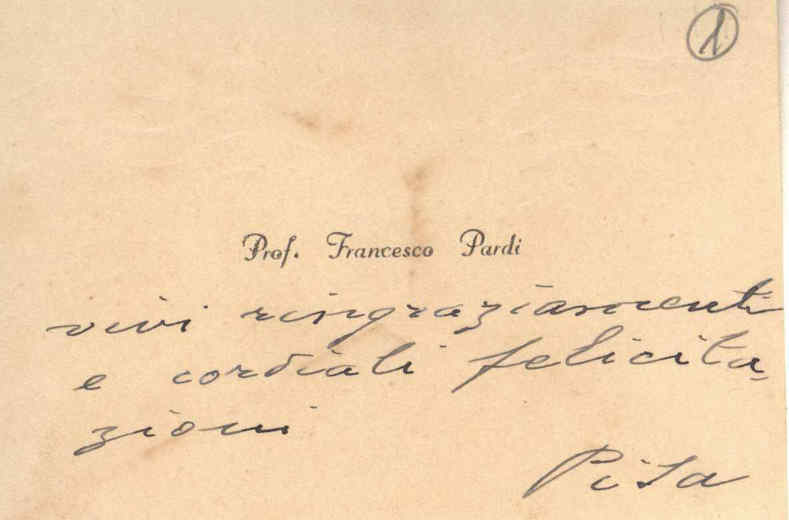 1
Prof. Francesco Pardi
vivi ringraziamenti
e cordiali felicita-
zioni
Pisa